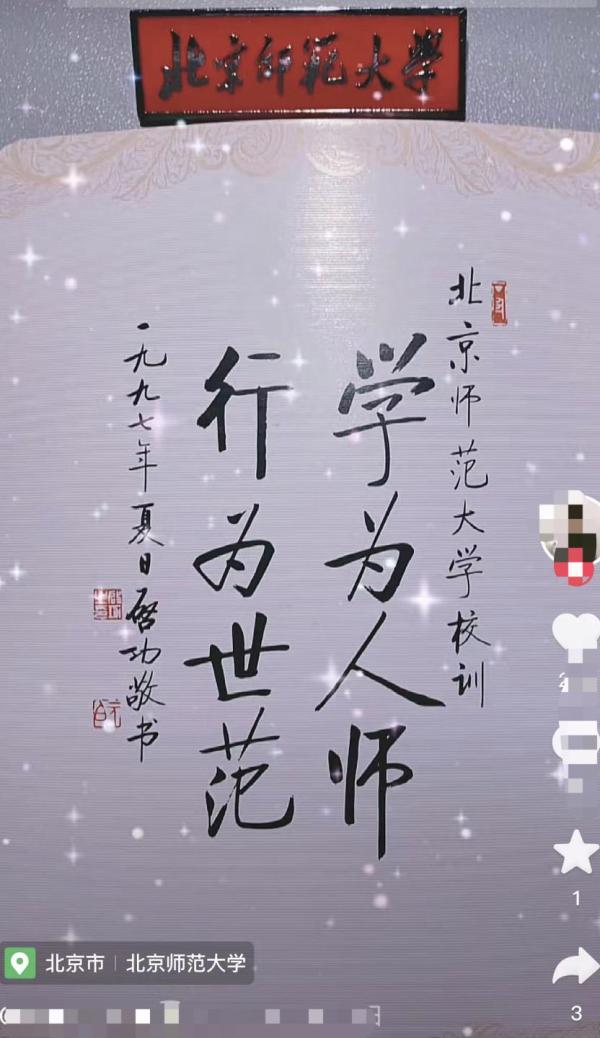 北京师范大学
北京师范大学校训
学为人师
行为世范
一九九七年夏日启功敬书
北京市 | 北京师范大学
1
3